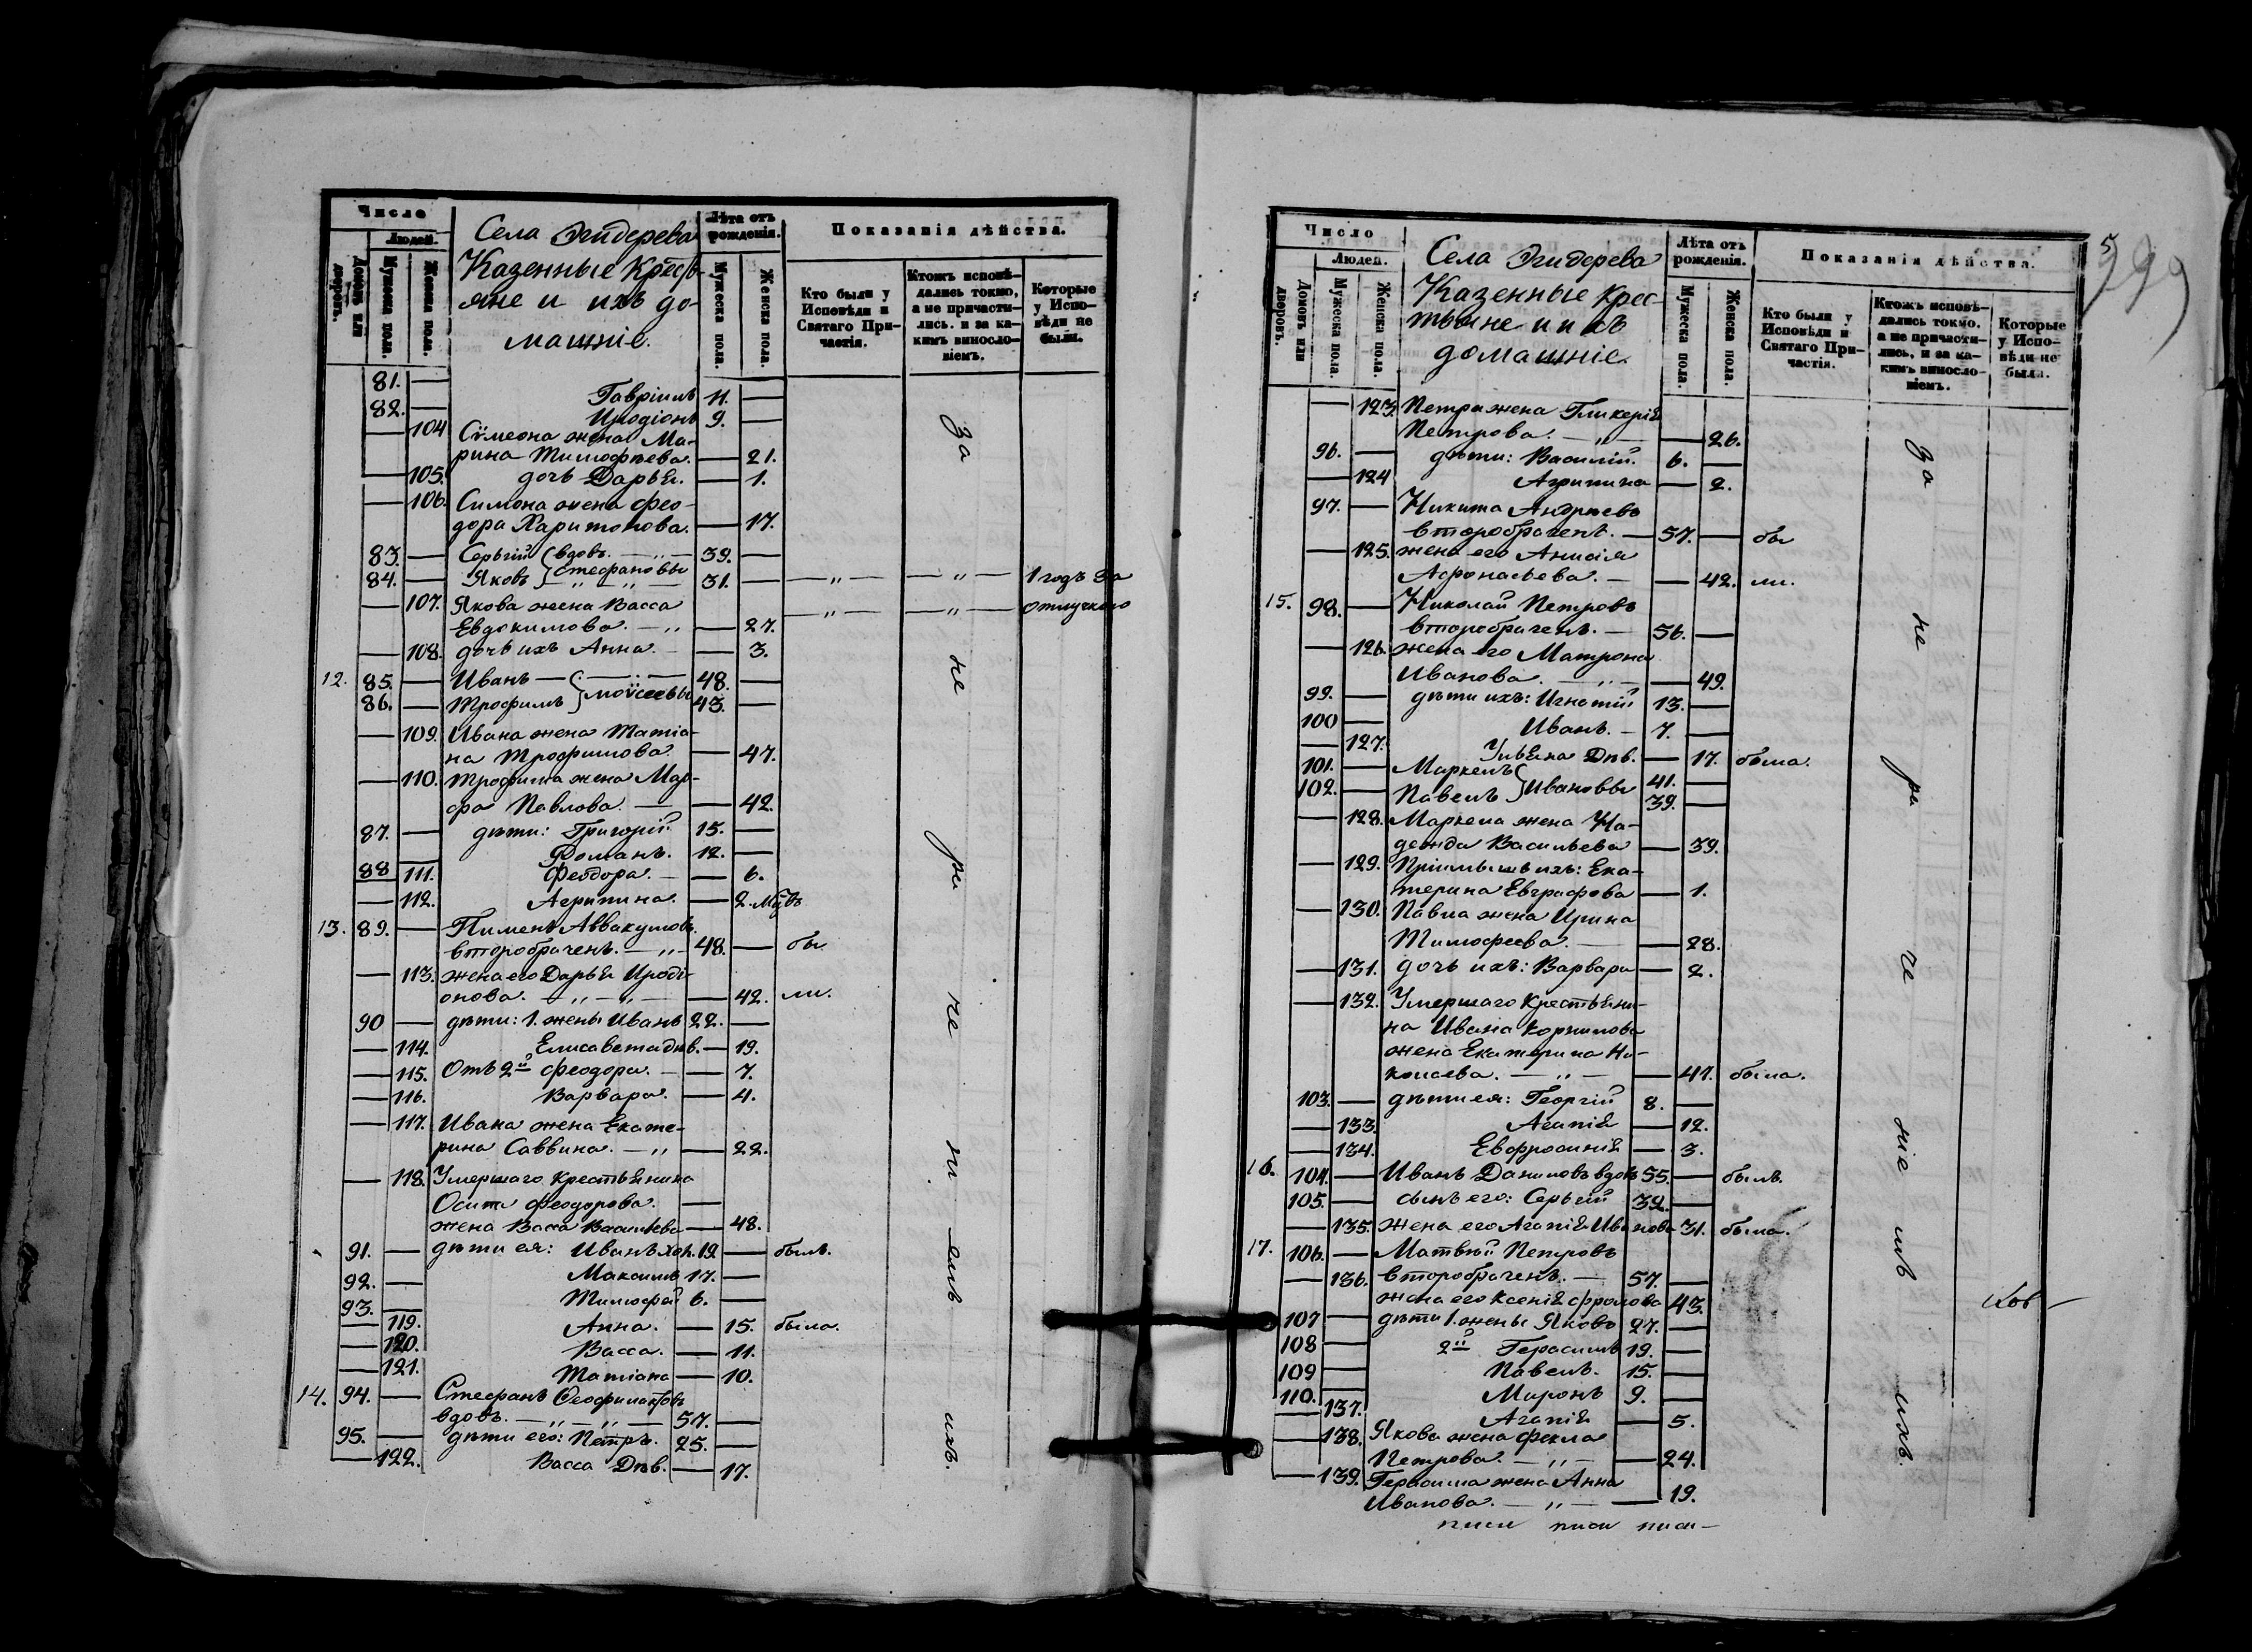 Число
Людей.
Домовъ или дворовъ.
Мужеска пола.
Женска пола.
Села Эгидерева
Казенные Кресть-
яне и ихъ до-
машніе.
Лѣта отъ рожденія.
Мужеска пола.
Женска пола.
Показанія дѣйства.
Кто были у Исповѣди и Святаго При-частія.
Ктожъ исповѣ-дались токмо, а не причасти-лись. и за ка-кимъ винosло-віемъ.
Которые у Испо-вѣди не были.
81. — Гавріилъ 11. —
82. — Иродіонъ 9. —
— 104 Сѵмеона жена Ма-
рина Тимофѣева. — 21.
— 105. дочь Дарья. — 1.
— 106. Симона жена Фео-
дора Харитонова. — 17.
83. — Сергій вдовъ. — 39. —
84. — Яковъ Стефановы 31. — — „ — — „ — 1 годъ за
— 107. Якова жена Васса — „ — — „ — отлучкою
Евдокимова. — „ — 27.
— 108. дочь ихъ Анна. — 3.
12. 85. — Иванъ — 48. —
86. — Трофимъ Моѵсеевы 43. —
— 109. Ивана жена Татіа-
на Трофимова. — 47.
— 110. Трофима жена Мар-
фа Павлова. — 42.
87. — дѣти: Григорій. 15. —
88 — Романъ. 12. —
111. Феодора. — 6.
— 112. Агрипина. — 2.
13. 89. — Пименъ Аввакумовъ
второбраченъ. — „ — 48. — бы
— 113. жена его Дарья Ироді-
онова. — „ — „ — 42. ли.
90 — дѣти: 1. жены Иванъ 22. —
— 114. Елисавета дѣв. — 19.
— 115. Отъ 2й Феодора. — 7.
— 116. Варвара. — 4.
— 117. Ивана жена Екате-
рина Саввина. — „ — 22.
— 118. Умершаго Крестьянина
Осипа Феодорова. —
жена Васса Васильева — 48.
91. — дѣти ея: Иванъ хол. 19. — былъ.
92. — Максимъ 17. —
93. — Тимофей 6. —
— 119. Анна. — 15. была.
— 120. Васса. — 11.
— 121. Татіана — 10.
14. 94. — Стефанъ Феофилактовъ
вдовъ. — „ — „ — 57. —
95. — дѣти его: Петръ. 25. —
— 122. Васса Дѣв. — 17.
за не ра че ні емъ ихъ.
Число
Людей.
Домовъ или дворовъ.
Мужеска пола.
Женска пола.
Села Эгидерева
Казенные Крес-
тьяне и ихъ
домашніе.
Лѣта отъ рожденія.
Мужеска пола.
Женска пола.
Показанія дѣйства.
Кто были у Исповѣди и Святаго При-частія.
Ктожъ исповѣ-дались токмо. а не причасти-лись, и за ка-кимъ винosло-віемъ.
Которые у Испо-вѣди не были.
— 123. Петра жена Гликерія
Петрова. — „ — 26.
96. — дѣти: Василій. 6. —
— 124 Агрипина — 2.
97. — Никита Андреевъ
второбраченъ. — 57. — бы
— 125. жена его Анисія
Афонасьева. — 42. ли.
15. 98. — Николай Петровъ
второбраченъ. — 56. —
— 126. жена его Матрона
Иванова. — „ — 49.
99. — дѣти ихъ: Игнатій 13. —
100 — Иванъ. — 7. —
— 127. Ульяна Дѣв. — 17. была.
101. — Маркелъ 41. —
102. — Павелъ Ивановы 39. —
— 128. Маркела жена На-
дежда Васильева — 39.
— 129. Пріимышъ ихъ: Ека-
терина Евграфова — 1.
— 130. Павла жена Ирина
Тимофеева. — 28.
— 131. дочь ихъ: Варвара — 2.
— 132. Умершаго Крестьяни-
на Ивана Корнилова
жена Екатерина Ни-
колаева. — „ — 41. была.
103. — дѣти ея: Георгій 8. —
— 133. Агапія — 12.
— 134. Евфросинія — 3.
16. 104. — Иванъ Даниловъ вдовъ 55. — былъ.
105. — сынъ его: Сергій 32. —
— 135. жена его Агапія Иванова 31. была.
17. 106. — Матвѣй Петровъ
— 136. второбраченъ. — 57. —
жена его Ксенія Фролова 43.
107 — дѣти 1. жены Яковъ 27. —
108 — 2й Герасимъ 19. —
109 — Павелъ. 15. —
110. — Миронъ 9. —
— 137. Агапія — 5.
— 138. Якова жена Фекла
Петрова. — „ — 24.
— 139. Герасима жена Анна
Иванова. — „ — 19.
за не ра че ніе мъ ихъ.